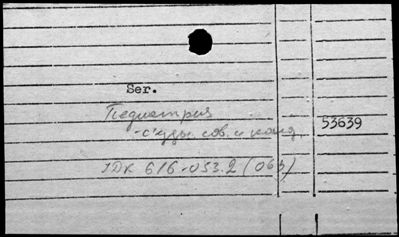 Ser.
Педиатрия
- съезды сов. и конф. 53639
УДК 616-053.2 (063)